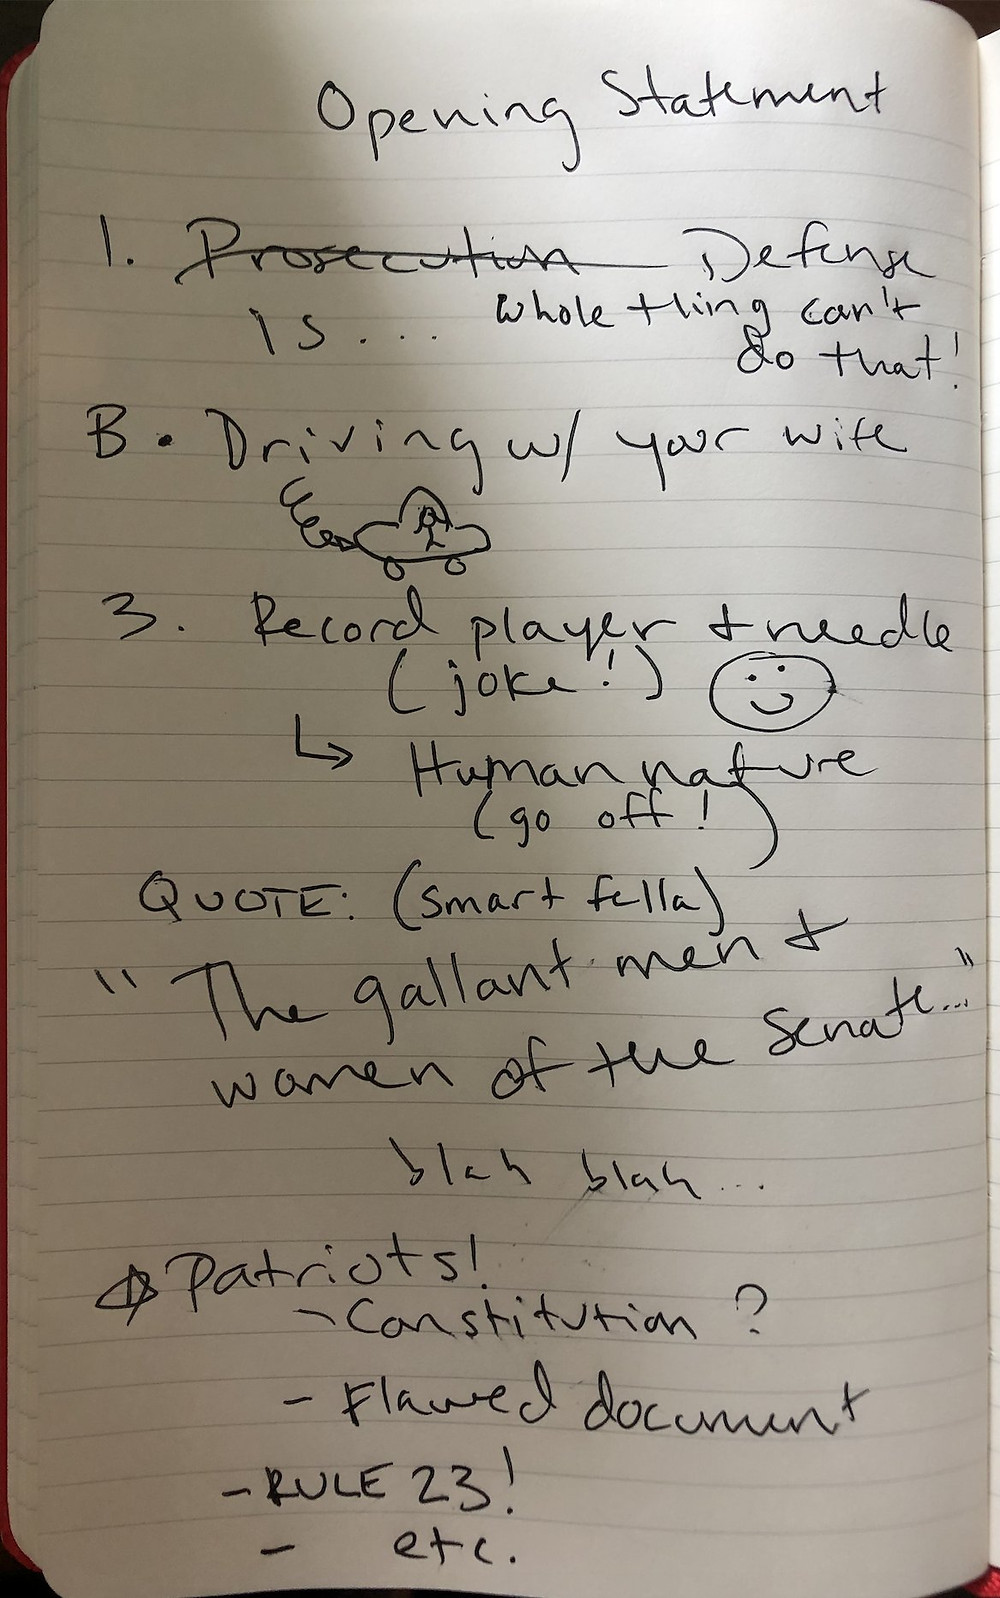 Opening Statement
1. Prosecution Defense
is... whole thing can't
do that!
B. Driving w/ your wife
3. Record player + needle
(joke!)
↳ Human nature
(go off!)
QUOTE: (smart fella)
"The gallant men +
women of the Senate..."
blah blah...
Patriots!
- Constitution?
- Flawed document
- RULE 23!
- etc.